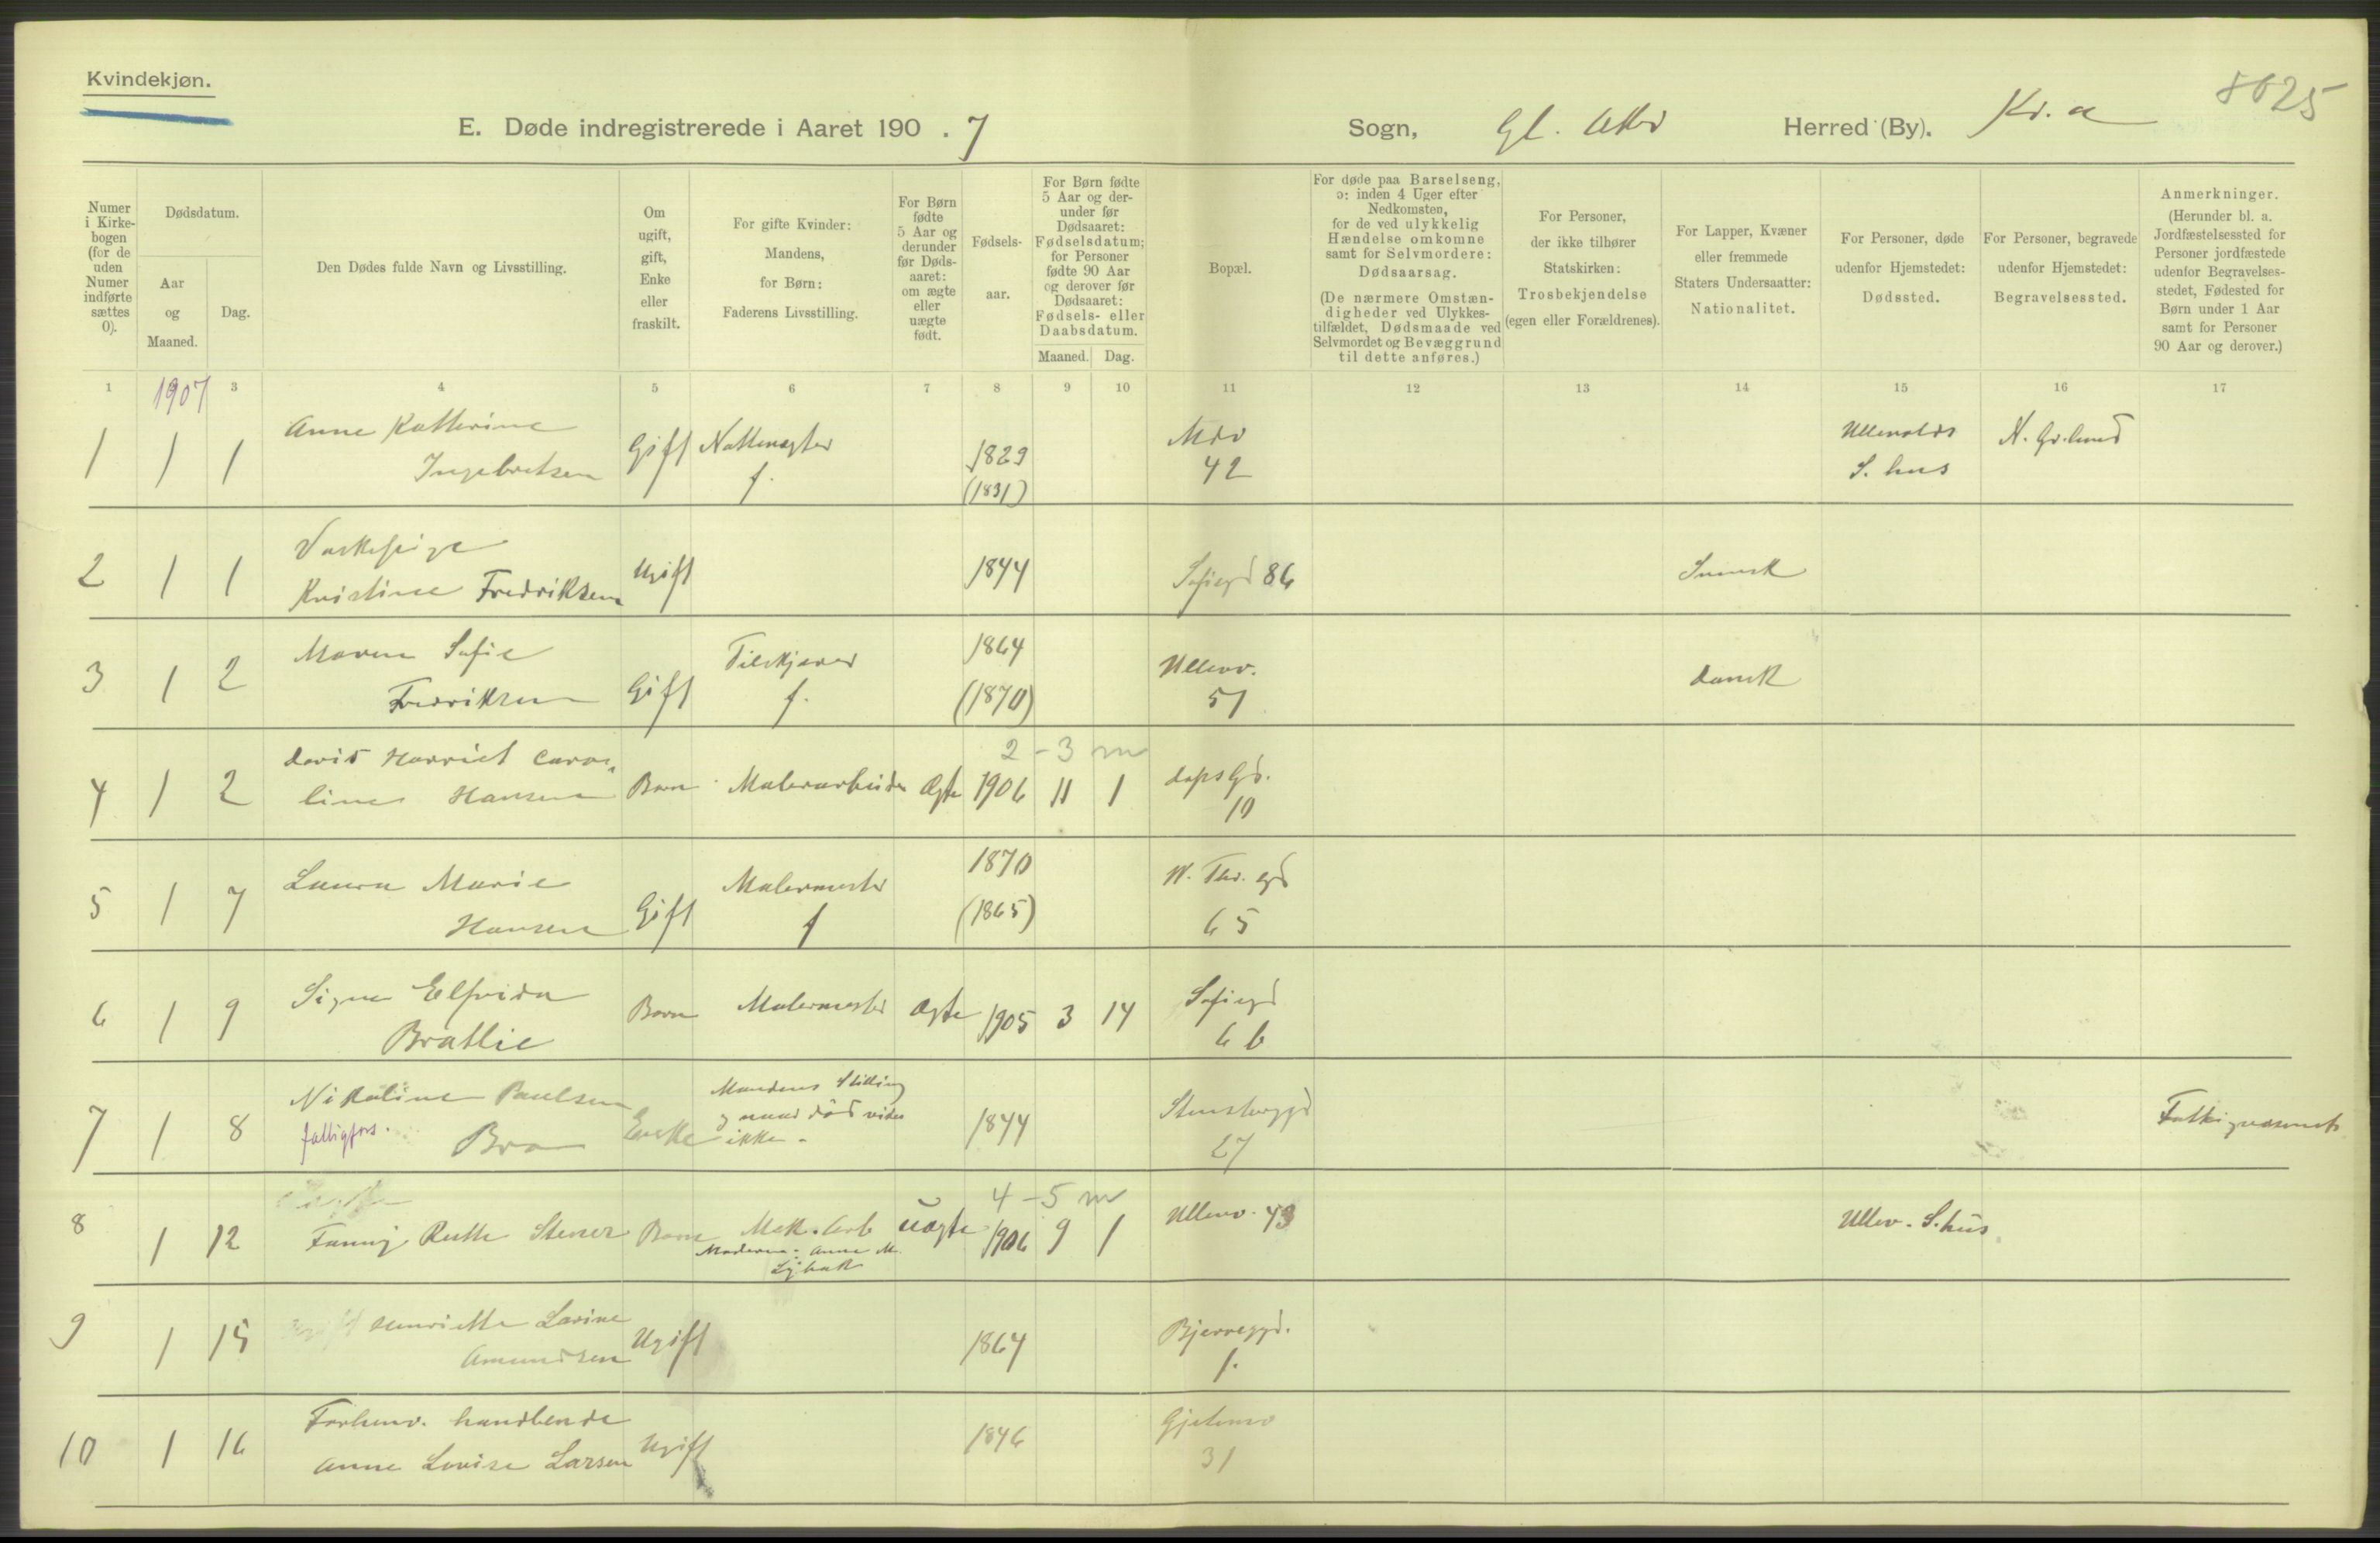 Kvindekjøn.
8625
E. Døde indregistrerede i Aaret 190 . 7 Sogn, Gl. Aker Herred (By). Kr. a
Numer i Kirke-bogen (for de uden Numer indførte sættes 0).
Dødsdatum.
Aar og Maaned.
Dag.
Den Dødes fulde Navn og Livsstilling.
Om ugift, gift, Enke eller fraskilt.
For gifte Kvinder: Mandens, for Børn: Faderens Livsstilling.
For Børn fødte 5 Aar og derunder før Døds-aaret: om ægte eller uægte født.
Fødsels-aar.
For Børn fødte 5 Aar og der-under før Dødsaaret: Fødselsdatum; for Personer fødte 90 Aar og derover før Dødsaaret: Fødsels- eller Daabsdatum.
Maaned. Dag.
Bopæl.
For døde paa Barselseng, ɔ: inden 4 Uger efter Nedkomsten, for de ved ulykkelig Hændelse omkomne samt for Selvmordere: Dødsaarsag.
(De nærmere Omstæn-digheder ved Ulykkes-tilfældet, Dødsmaade ved Selvmordet og Bevæggrund til dette anføres.)
For Personer, der ikke tilhører Statskirken: Trosbekjendelse (egen eller Forældrenes).
For Lapper, Kvæner eller fremmede Staters Undersaatter: Nationalitet.
For Personer, døde udenfor Hjemstedet: Dødssted.
For Personer, begravede udenfor Hjemstedet: Begravelsessted.
Anmerkninger.
(Herunder bl. a. Jordfæstelsessted for Personer jordfæstede udenfor Begravelses-stedet, Fødested for Børn under 1 Aar samt for Personer 90 Aar og derover.)
1 1907 3 4 5 6 7 8 9 10 11 12 13 14 15 16 17
1 1 1 Anne Katherine Ingebretsen Gift Nattevægter f. 1829 (1831) 42 Ullevolds S. hus N. Gr.lund
2 1 1 Vaskepige Kristine Fredriksen Ugift 1844 Sofiegd 86 Svensk
3 1 2 Maren Sofie Fredriksen Gift Tilskjærer f. 1864 (1870) Ullevv. 57 dansk
2 - 3 m
4 1 2 Doris Harriet Caroline Hansen Barn Malerarbeider Ægte 1906 11 1 Dops Gd. 10
5 1 7 Laura Marie Hansen Gift Malermester f 1870 (1865) W. Thr. gd 65
6 1 9 Signe Elfrida Bratlie Barn Malermester Ægte 1905 3 14 Sofiegd 6 b
7 1 8 Nikoline Paulsen Bra fattigfors. Enke Mandens Stilling og naar død vides ikke - 1844 Stensberggd 27
4 - 5 m
8 1 12 Fanny Ruth Stener Barn Mek. Arb Moderen: Anne M. uægte 1906 9 1 Ullevv. 43 Ullev. S. hus
9 1 15 Henriette Lovise Amundsen Ugift 1864 Bjerreggd. 1.
10 1 16 Forhenv. handlende Anne Lovise Larsen Ugift 1846 Gjetemv 31